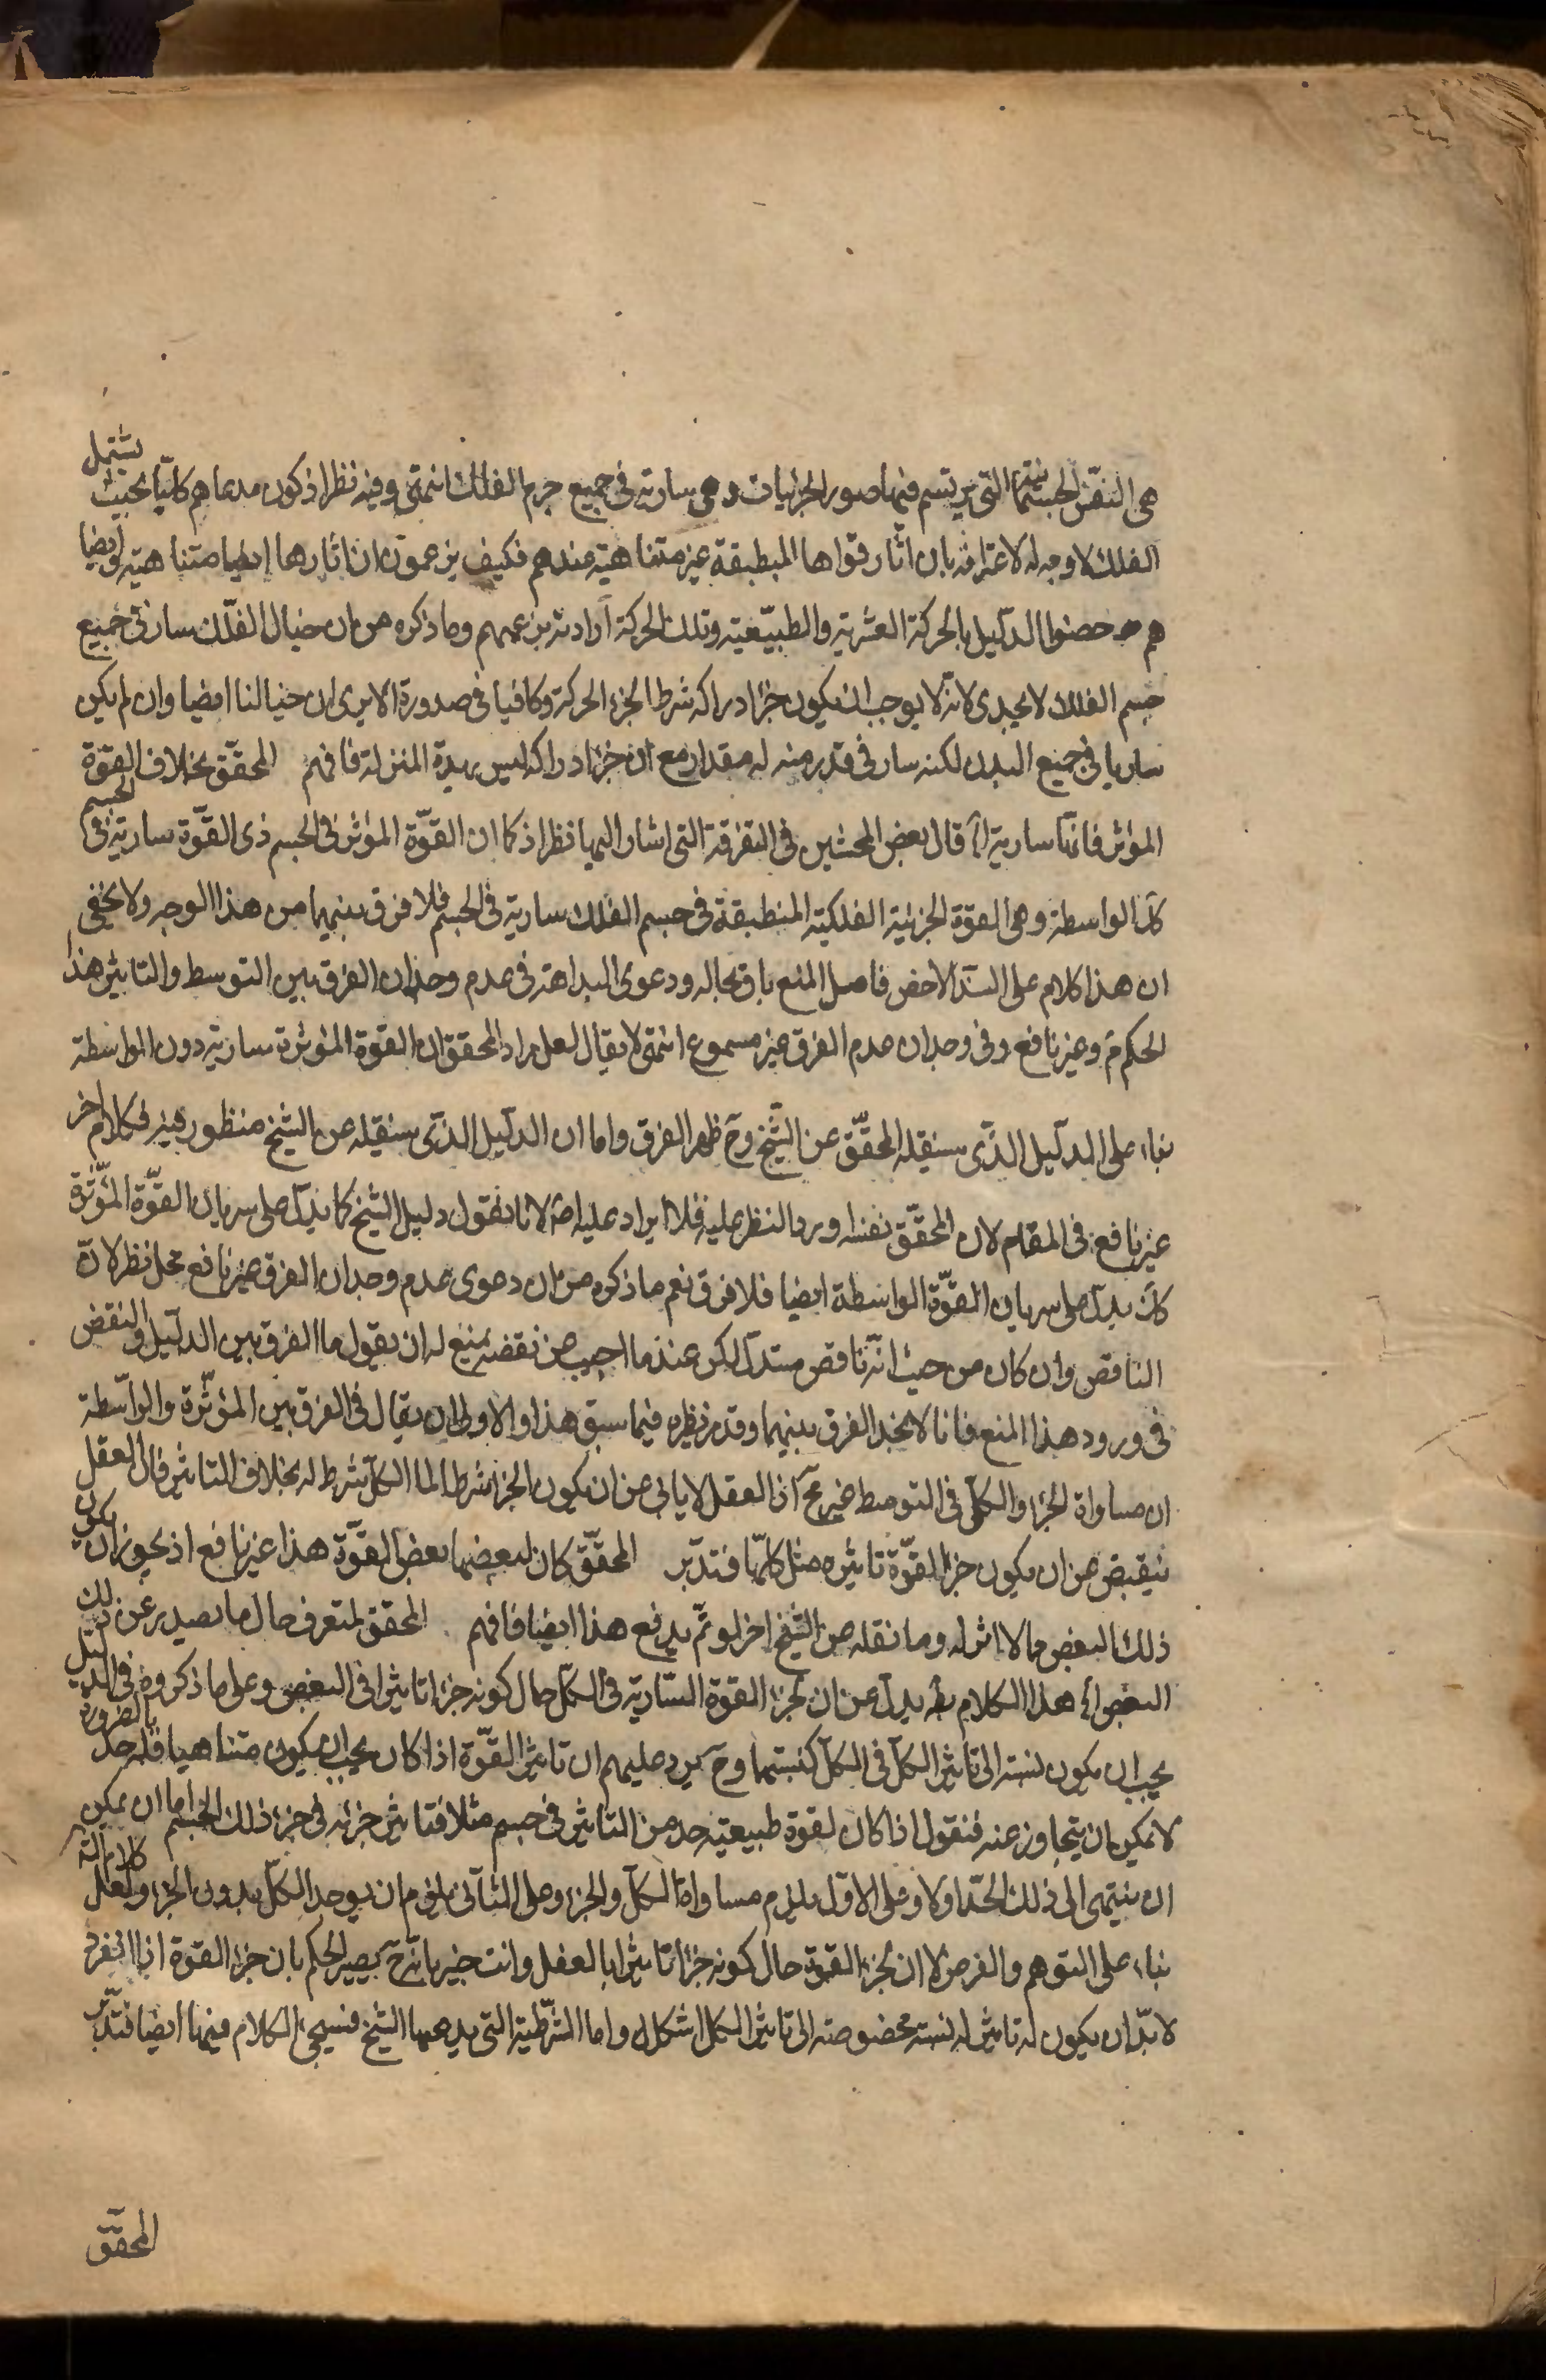 هى النفس الجسمانية التى يرتسم فيها صور الجزئيات وهى سارية فى جميع جرم الفلك انتهى وفيه نظر اذ كون مدعاهم كليا بحيث يشتمل
الفلك لا وجه له لاعترافه بان اثار قواها المنطبقة غير متناهية عندهم فكيف يزعمون ان اثارها ايضا متناهية وايضا
هم خصوا الدليل بالحركة القسرية والطبيعية وتلك الحركة ارادية بزعمهم وما ذكره من ان خيال الفلك سار فى جميع
جسم الفلك لا يجدى لانه لا يوجب ان يكون جزء ادراكه شرطا لجزء الحركة وكافيا فى صدوره الا يرى ان خيالنا ايضا وان لم يكن
ساريا فى جميع البدن لكنه سار فى قدر منه له مقدار مع ان جزء ادراكه ليس بهذة المنزلة فافهم المحقق بخلاف القوة
المؤثر فانها سارية اه قال بعض المحشين فى التفرقة التى اشار اليها نظر اذ كما ان القوة المؤثر فى الجسم ذى القوة سارية فى الجسم
كك الواسطة وهى القوة الجزئية الفلكية المنطبقة فى جسم الفلك سارية فى الجسم فلا فرق بينهما من هذا الوجه ولا يخفى
ان هذا كلام على السند الاخص فاصل المنع باق بحاله ودعوى البداهة فى عدم وجدان الفرق بين التوسط والتاثير هذا
الحكم م وغير نافع وفى وجدان عدم الفرق غير مسموع انتهى لا يقال لعل مراد المحقق ان القوة المؤثرة سارية دون الواسطة
بناء على الدليل الذى سينقله المحقق عن الشيخ وح ظهر الفرق واما ان الدليل الذى سينقله عن الشيخ منظور فيه فكلام اخر
غير نافع فى المقام لان المحقق نفسه اورد النظر عليه فلا ايراد عليه اصلا لانا نقول دليل الشيخ كما يدل على سريان القوة المؤثرة
كك يدل على سريان القوة الواسطة ايضا فلا فرق نعم ما ذكره من ان دعوى عدم وجدان الفرق غير نافع محل نظر لان
الناقض وان كان من حيث انه ناقض مستدل لكن عندما اجيب عن نقضه بمنع له ان يقول ما الفرق بين الدليل والنقض
فى ورود هذا المنع فانا لا نجد الفرق بينهما وقد مر نظيره فيما سبق هذا والاولى ان يقال فى الفرق بين المؤثرة والواسطة
ان مساواة الجزء والكل فى التوسط غير مح اذ العقل لا يابى عن ان يكون الجزء شرطا لما الكل شرط له بخلاف التاثير فان العقل
ينقبض عن ان يكون جزء القوة تاثيره مثل كلها فتدبر المحقق كان لبعضها بعض القوة هذا غير نافع اذ يجوز ان يكون
ذلك البعض مما لا اثر له وما نقله من الشيخ اخر لو تم يدفع هذا ايضا فافهم المحقق لتعرف حال ما يصدر عن ذلك
البعض اه هذا الكلام يدل عن ان لجزء القوة السارية فى الكل حال كونه جزءا تاثيرا فى البعض وعلى ما ذكروه فى الدليل
يجب ان يكون نسبته الى تاثير الكل فى الكل كنسبتهما وح يرد عليهم ان تاثير القوة اذا كان يجب ان يكون متناهيا فله حد بالضرورة
لا يمكن ان يتجاوز عنه فنقول اذا كان لقوة طبيعية حد من التاثير فى جسم مثلا فتاثير جزئه فى جزء ذلك الجسم اما ان يمكن
ان ينتهى الى ذلك الحد او لا وعلى الاول يلزم مساواة الكل والجزء وعلى الثانى يلزم ان يوجد الكل بدون الجزء ولعل كلام
بناء على التوهم والفرض لا ان لجزء القوة حال كونه جزءا تاثيرا بالفعل وانت خبير بانه ح يصير الحكم بان جزء القوة اذا انفرد
لا بد ان يكون له تاثير له نسبة مخصوصة الى تاثير الكل اشكل واما الشرطية التى يدعيها الشيخ فسيجىء الكلام فيها ايضا فتدبر
المحقق